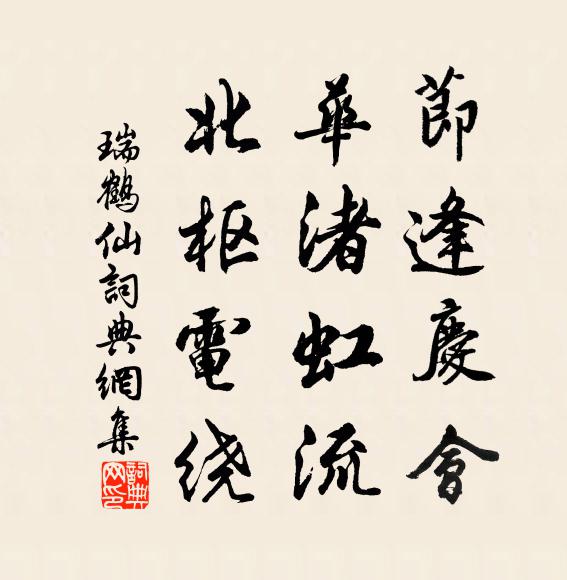 節逢慶會
華渚虹流
北枢電绕
瑞鶴仙詞典網集
詞典网印